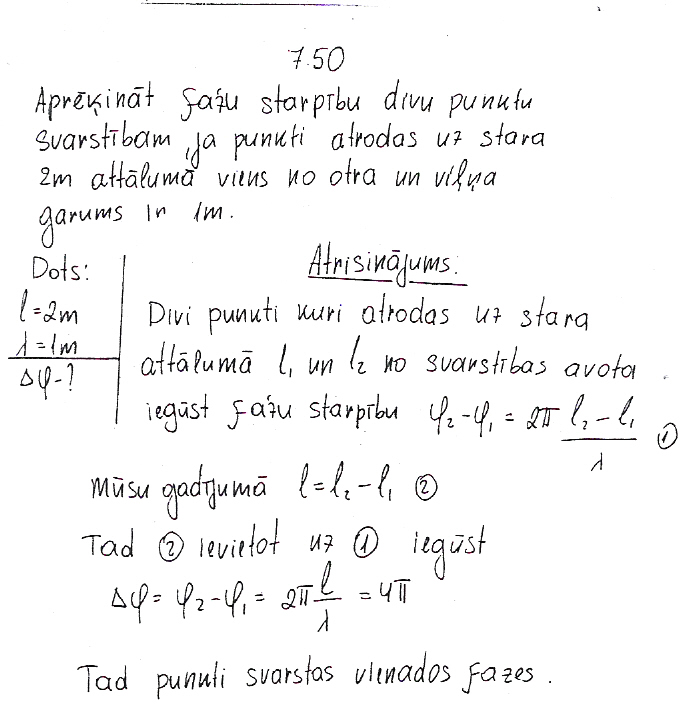 7.50
Aprēķināt fažu starpību divu punktu
svarstībam, ja punkti atrodas uz stara
2m attālumā viens no otra un viļņa
garums ir 1m.
Dots:
l=2m
λ=1m
Δφ-?
Atrisinājums:
Divi punkti kuri atrodas uz stara
attālumā l₁ un l₂ no svarstības avota
iegūst fažu starpību φ₂-φ₁ = 2π (l₂-l₁)/λ ①
Mūsu gadījumā l=l₂-l₁ ②
Tad ② ievietot uz ① iegūst
Δφ= φ₂-φ₁= 2π l/λ =4π
Tad punkti svarstas vienados fazes.